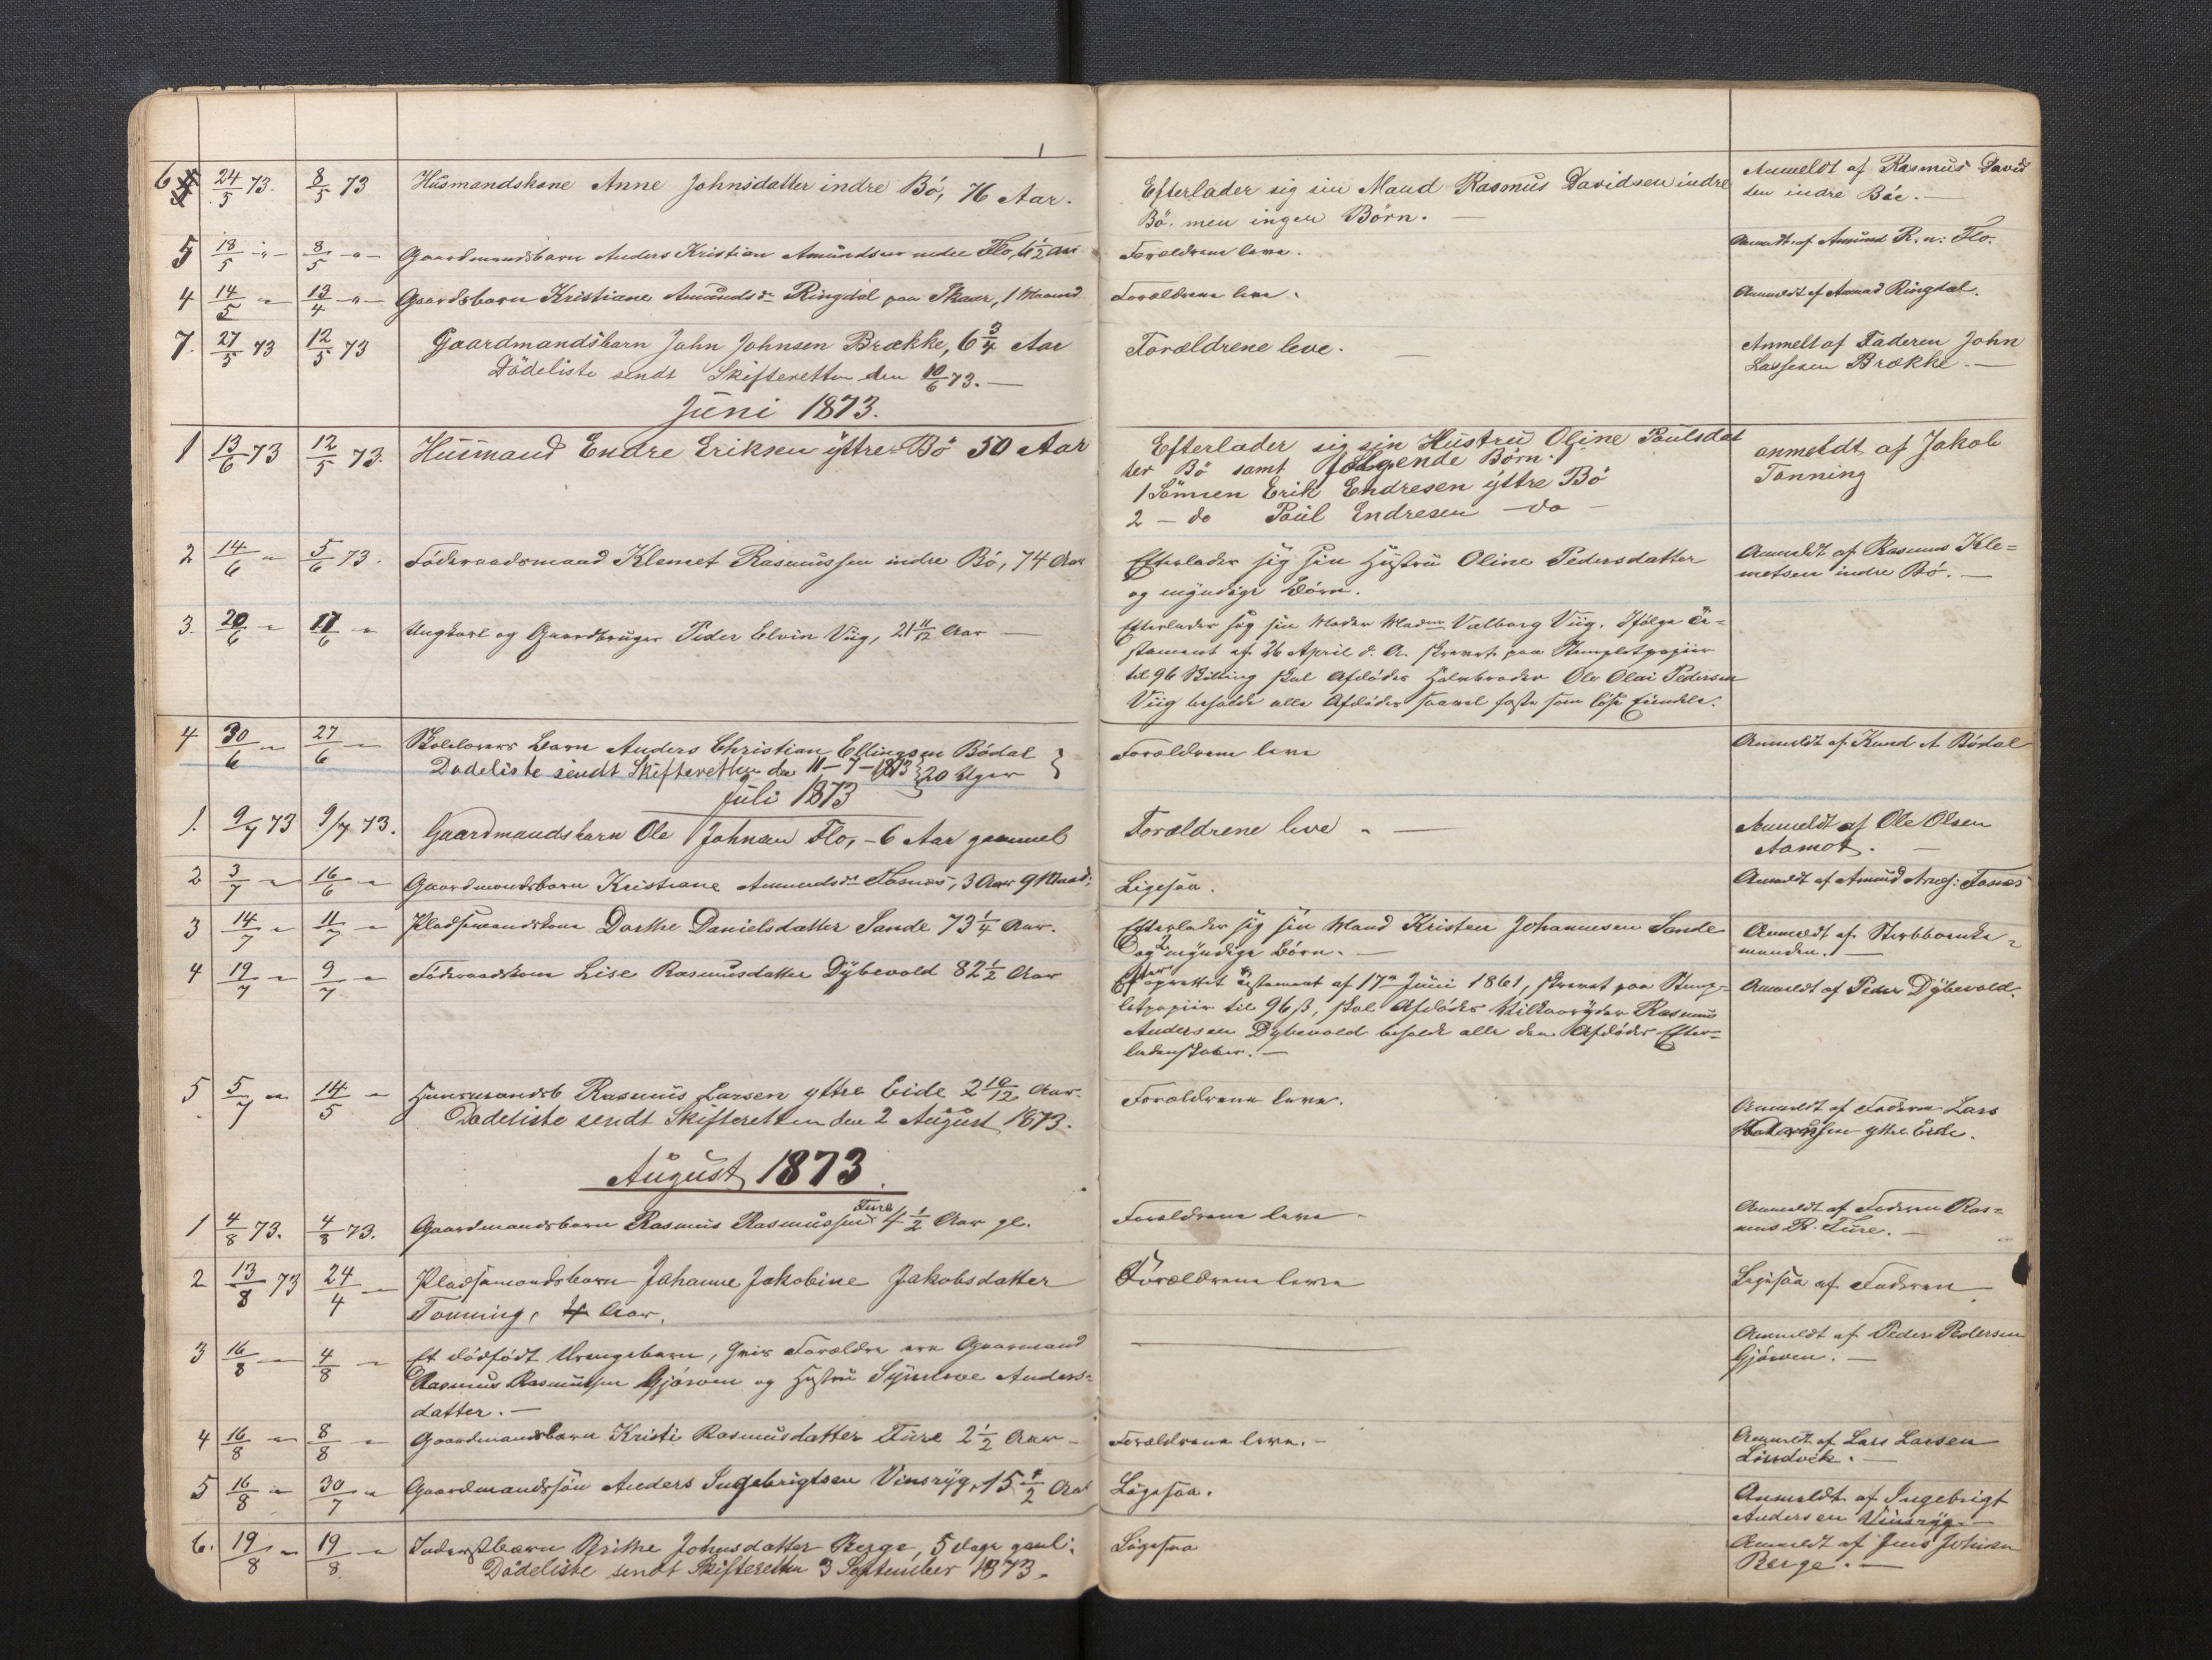 6 24/5 73. 8/5 73 Husmandskone Anne Johnsdatter indre Bö, 76 Aar. Efterlader sig sin Mand Rasmus Davidsen indre Anmeldt af Rasmus David
Bö. men ingen Börn. — sen indre Böe. —
5 18/5 -"- 8/5 -"- Gaardmandsbarn Anders Kristian Amundsen nedre Flo, 6 1/2 Aar Forældrene leve. Anmeldt af Amund R. n: Flo.
4 14/5 -"- 13/4 -"- Gaardsbarn Kristiane Amundsdr Ringdal paa Skaar, 1 Maaned Forældrene leve. Anmeldt af Amund Ringdal.
7. 27/5 73 12/5 73 Gaardmandsbarn John Johnsen Brække, 6 3/4 Aar Forældrene leve. — Anmelt af Faderen John
Dödeliste sendt Skifteretten den 10/6 73. — Lassesen Brække. —
Juni 1873.
1 13/6 73 12/5 73. Husmand Endre Eriksen yttre Bö 50 Aar Efterlader sig sin Hustru Oline Paulsdat anmeldt af Jakob
ter Bö samt fölgende Börn. Tonning
1 Sönnen Erik Endresen yttre Bö
2 — do Paul Endresen — do —
2 14/6 -"- 5/6 73. Föderaadsmand Klemet Rasmussen indre Bö, 74 Aar Efterlader sig sin Hustru Oline Pedersdatter Anmeldt af Rasmus Kle=
og myndige Börn. metsen indre Bö. —
3. 20/6 -"- 17/6 -"- Ungkarl og Gaardbruger Peder Elvin Viig, 21 11/12 Aar — Efterlader sig sin Moder Madm Valborg Viig. Ifölge Te=
stament af 26 April d. A. skrevet paa Stempletpapiir
til 96 Skilling skal Afdödes Halvbroder Ole Olai Pedersen
Viig beholde alle Afdödes saavel faste som löse Eiendele.
4 30/6 -"- 27/6 -"- Skolelærers Barn Anders Christian Ellingsen Bödal Forældrene leve Anmeldt af Knud A Bödal
Dödeliste sendt Skifteretten den 11-7-1873 } 20 Uger }
Juli 1873
1. 9/7 73 9/7 73. Gaardmandsbarn Ole Johnsen Flo, - 6 Aar gammel Forældrene leve — Anmeldt af Ole Olsen
Aamot. —
2 3/7 -"- 16/6 -"- Gaardmandsbarn Kristiane Amundsdr Fosnæs, 3 Aar 9 Maad: Ligesaa. Anmeldt af Amund Fosnæs
3 14/7 -"- 11/7 -"- Pladsmandskone Dorthe Danielsdatter Sande 73 1/4 Aar. Efterlader sig sin Mand Kristen Johannesen Sande Anmeldt af Stervboenke=
og 2 myndige Börn. — manden. —
4 19/7 -"- 9/7 -"- Föderaadskone Lise Rasmusdatter Dybevold 82 1/2 Aar Efter oprettet Testament af 17de Juni 1861, skrevet paa Stemp= Anmeldt af Peder Dybevold.
letpapiir til 96 ß, skal Afdödes Vilkaaryder Rasmus
Andersen Dybevold beholde alle den Afdödes Efter=
ladenskaber. —
5 5/7 -"- 14/5 -"- Huusmandsb Rasmus Larsen yttre Eide 2 10/12 Aar. Forældrene leve. Anmeldt af Faderen Lars
Dödeliste sendt Skifteretten den 2 August 1873. yttre Eide.
August 1873.
1 4/8 73. 4/8 73. Gaardmandsbarn Rasmus Rasmussen Fure 4 1/2 Aar gl. Forældrene leve — Anmeldt af Faderen Ras=
mus R. Fure. —
2 13/8 73 24/4 — Pladsemandsbarn Johanne Jakobine Jakobsdatter Forældrene leve Ligesaa af Faderen
Tonning, 4 Aar.
3 16/8 — 4/8 -"- Et dödfödt Drengebarn, hvis Forældre ere Gaarmand — Anmeldt af Peder Pedersen
Rasmus Rasmussen Gjörven og Hustru Synneve Anders= Gjörven. —
datter. —
4 16/8 -"- 8/8 -"- Gaardmandsbarn Kristi Rasmusdatter Fure 2 1/2 Aar — Forældrene leve. — Anmeldt af Lars Larsen
5 16/8 -"- 30/7 -"- Gaardmandssön Anders Ingebrigtsen Vinsryg, 15 1/2 Aar Ligesaa. Anmeldt af Ingebrigt
Andersen Vinsryg —
6. 19/8 -"- 19/8 -"- Inderstbarn Brithe Johnsdatter Berge, 5 dage gaml: Ligesaa Anmeldt af Jens Johnsen
Dödeliste sendt Skifteretten 3 September 1873. Berge. —